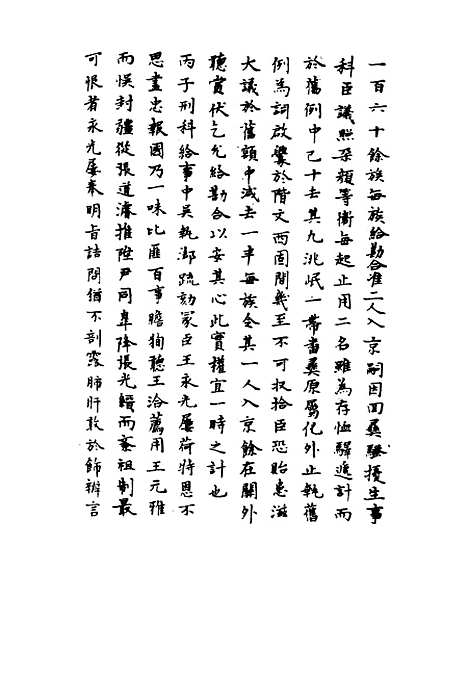 一百六十餘族每族給勘合准二人入京嗣因回夷騷擾生事
科臣議照朶顏等衛每起止用二名雖為存恤驛遞計而
於舊例中已十去其九洮岷一帶畨夷原屬化外止執舊
例為詞啟釁於階文西固間幾至不可収拾臣恐貽患滋
大議於舊額中減去一半每族令其一人入京餘在關外
聽賞伏乞允給勘合以安其心此實權宜一時之計也
丙子刑科給事中吳執御疏劾冡臣王永光屢荷特恩不
思盡忠報國乃一味比匪百事瞻狥聽王洽薦用王元雅
而悞封疆從張道濬推陞尹同皐降張光縉而紊祖制最
可恨者永光屢奉明旨詰問猶不剖露肺肝敢於飾辨言